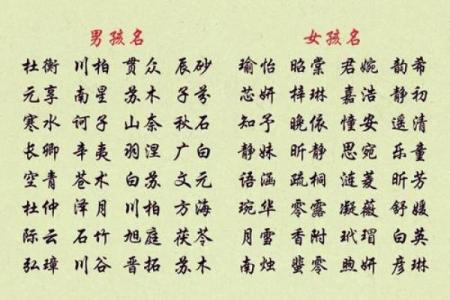 男孩名 女孩名
杜衡 川柏 贯众 辰砂 瑜怡 昭棠 君婉 韵希
元享 南星 苏木 子芩 芯妍 梓琳 嘉浩 静初
寒水 诃子 山奈 秋石 知予 晚依 憧安 遥清
长卿 辛夷 羽涅 广白 静姝 昕静 思宛 乐童
空青 苍术 白苏 文元 语涵 疏桐 涟菱 昕芳
杜仲 泽月 川柏 方海 琬华 零露 凝薇 舒媛
际云 石竹 旭庭 茯苓 月雪 香附 玳瑁 白英
弘璋 川谷 晋拓 苏木 南烛 蜚零 煦妍 彦琳